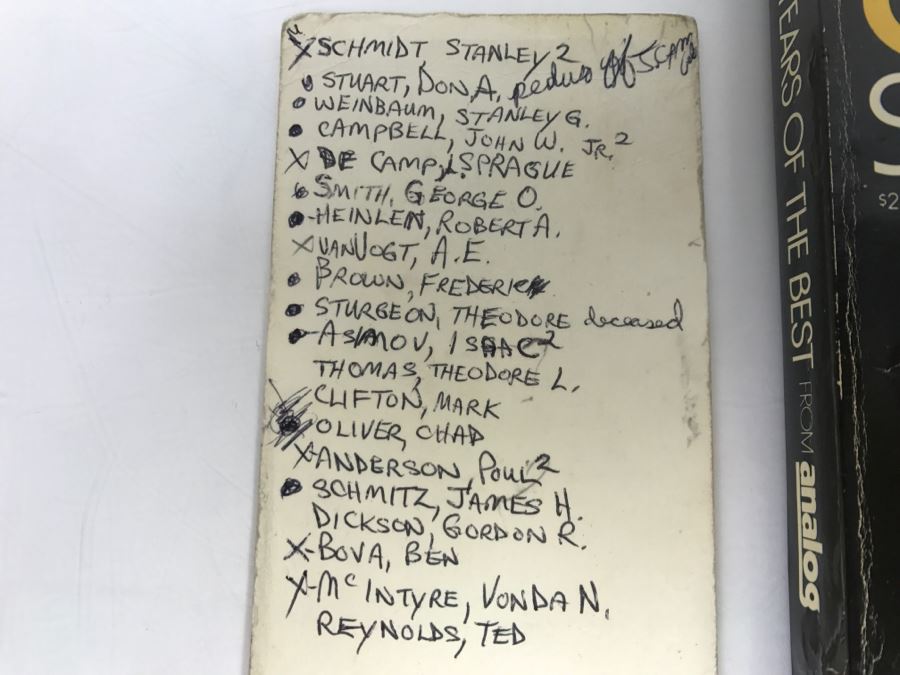 X SCHMIDT STANLEY 2
• STUART, DON A. of SCAM
• WEINBAUM, STANLEY G.
• CAMPBELL, JOHN W. JR. 2
X DE CAMP, L SPRAGUE
• SMITH, GEORGE O.
• -HEINLEN, ROBERT A.
X VAN VOGT, A.E.
• BROWN, FREDERICK
• STURGEON, THEODORE deceased
• -ASIMOV, ISAAC 2
THOMAS, THEODORE L.
CLIFTON, MARK
• OLIVER, CHAD
X-ANDERSON, POUL 2
• SCHMITZ, JAMES H.
DICKSON, GORDON R.
X-BOVA, BEN
X-McINTYRE, VONDA N.
REYNOLDS, TED
YEARS OF THE BEST FROM analog
$2